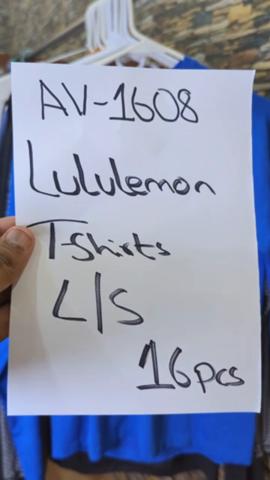 AV-1608
Lululemon
T-Shirts
L/S
16pcs